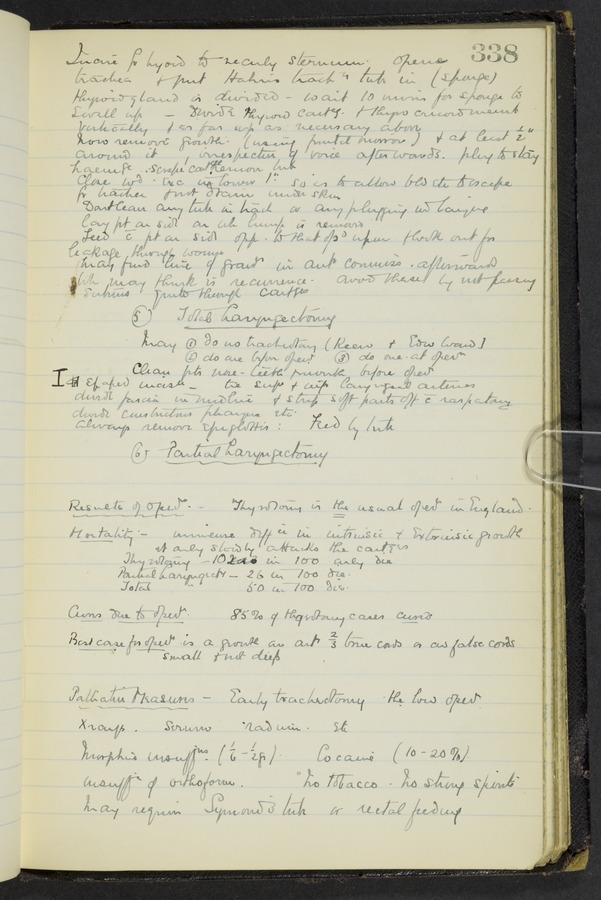 338
Incise fr hyoid to nearly sternum. Open
trachea & put Hahn's trach tube in (sponge)
Thyroid gland is divided - wait 10 mins for sponge to
swell up - Divide Thyroid cart. & thyro cricoid memb
vertically & as far up as necessary above
now remove growth. & at least ½"
around it, irrespective of voice afterwards. plug to stay
haemge. scrape cart. Remove tube
Close wd. exc. lower 1" so as to allow bld etc to escape
fr trachea first drain under skin
Dont leave any tube in trach or any plugging in larynx
lay pt on side on wh. is removed
Feed c pt on side opp. to that opd upon & look out for
leakage through wound
may find line of gran in ant commiss. afterwards
wh may think is recurrence. avoid these by not
quite through cartge
(5) Total Laryngectomy
May ① do no tracheotomy (Keen & )
② do one before opern ③ do one at opern
Clean pts nose - teeth & mouth before opern
I shaped incis - tie sup & inf laryngeal arteries
divide fascia in midline & strip soft parts off c raspatory
divide constrictors pharynx etc
always remove epiglottis: Feed by tube
(6) Partial Laryngectomy
Results of Opern. - Thyrotomy is the usual opern in England.
Mortality - immense diff ce in intrinsic & Extrinsic growth
it only slowly attacks the cartges
Thyrotomy - 10 in 100 only die
Partial Laryngect - 26 in 100 die.
Total 50 in 100 die.
Cures due to opern. 85% of thyrotomy cases cured
Best case for opern is a growth on ant ⅔ true cords or on false cords
small & not deep
Palliative Measures - Early tracheotomy the low opern.
X rays. Serum radium. etc
Morphia insuffns. (1/6 - 1/4 gr). Cocaine (10-20%)
insuffn of orthoform. No tobacco - No strong spirits
May require Symond's tube or rectal feeding